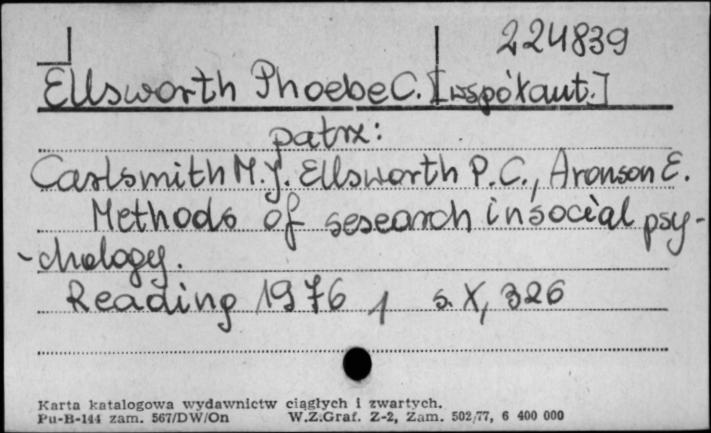 224839
Ellsworth Phoebe C. [współaut.]
patrz:
Carlsmith M.J. Ellsworth P.C., Aronson E.
Methods of research in social psy-
-chology.
Reading 1976 1 s. X, 326
Karta katalogowa wydawnictw ciągłych i zwartych.
Pu-B-144 zam. 567/DW/On W.Z.Graf. Z-2, Zam. 502/77, 6 400 000